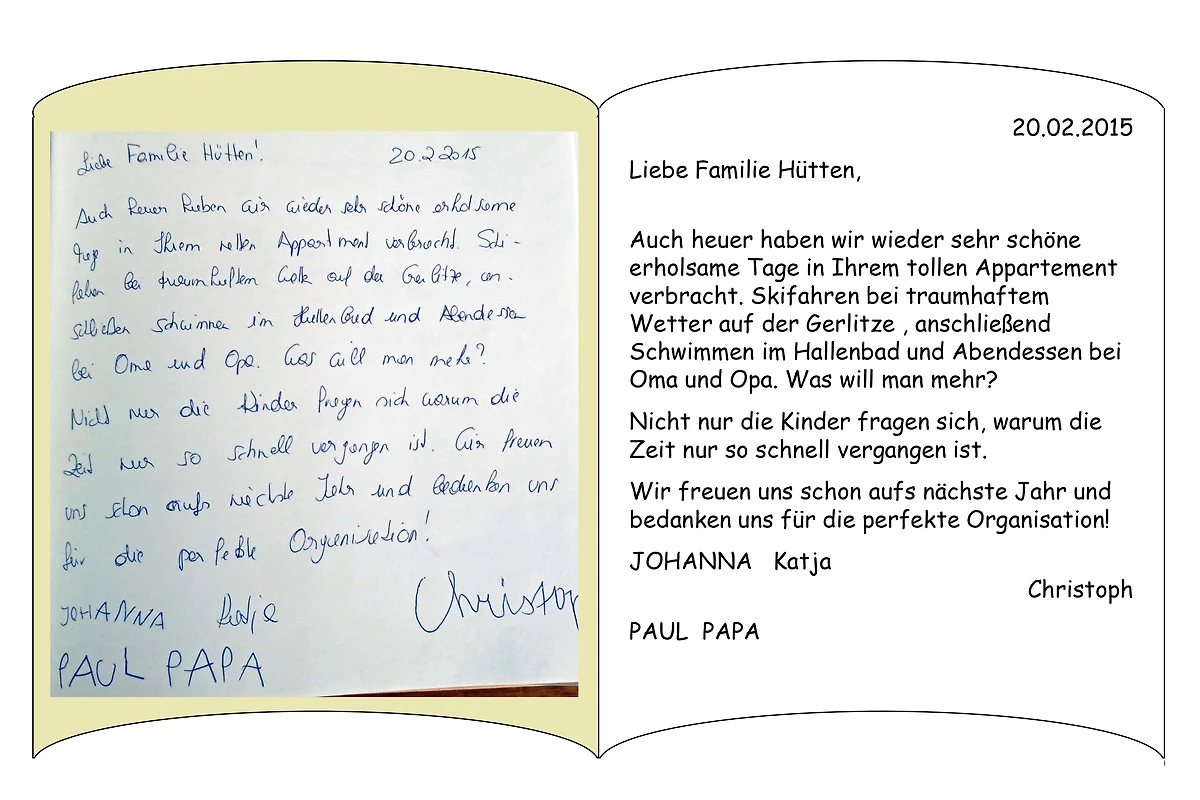 Liebe Familie Hütten!
20.2.2015
Auch heuer haben wir wieder sehr schöne erholsame
Tage in Ihrem netten Appartment verbracht. Schi-
fahren bei traumhaftem Wetter auf der Gerlitze, an-
schließen schwimmen im Hallenbad und Abendessen
bei Oma und Opa. Was will man mehr?
Nicht nur die Kinder fragen sich warum die
Zeit nur so schnell vergangen ist. Wir freuen
uns schon aufs nächste Jahr und bedanken uns
für die perfekte Organisation!
JOHANNA Katja Christop
PAUL PAPA
20.02.2015
Liebe Familie Hütten,
Auch heuer haben wir wieder sehr schöne
erholsame Tage in Ihrem tollen Appartement
verbracht. Skifahren bei traumhaftem
Wetter auf der Gerlitze , anschließend
Schwimmen im Hallenbad und Abendessen bei
Oma und Opa. Was will man mehr?
Nicht nur die Kinder fragen sich, warum die
Zeit nur so schnell vergangen ist.
Wir freuen uns schon aufs nächste Jahr und
bedanken uns für die perfekte Organisation!
JOHANNA Katja
Christoph
PAUL PAPA